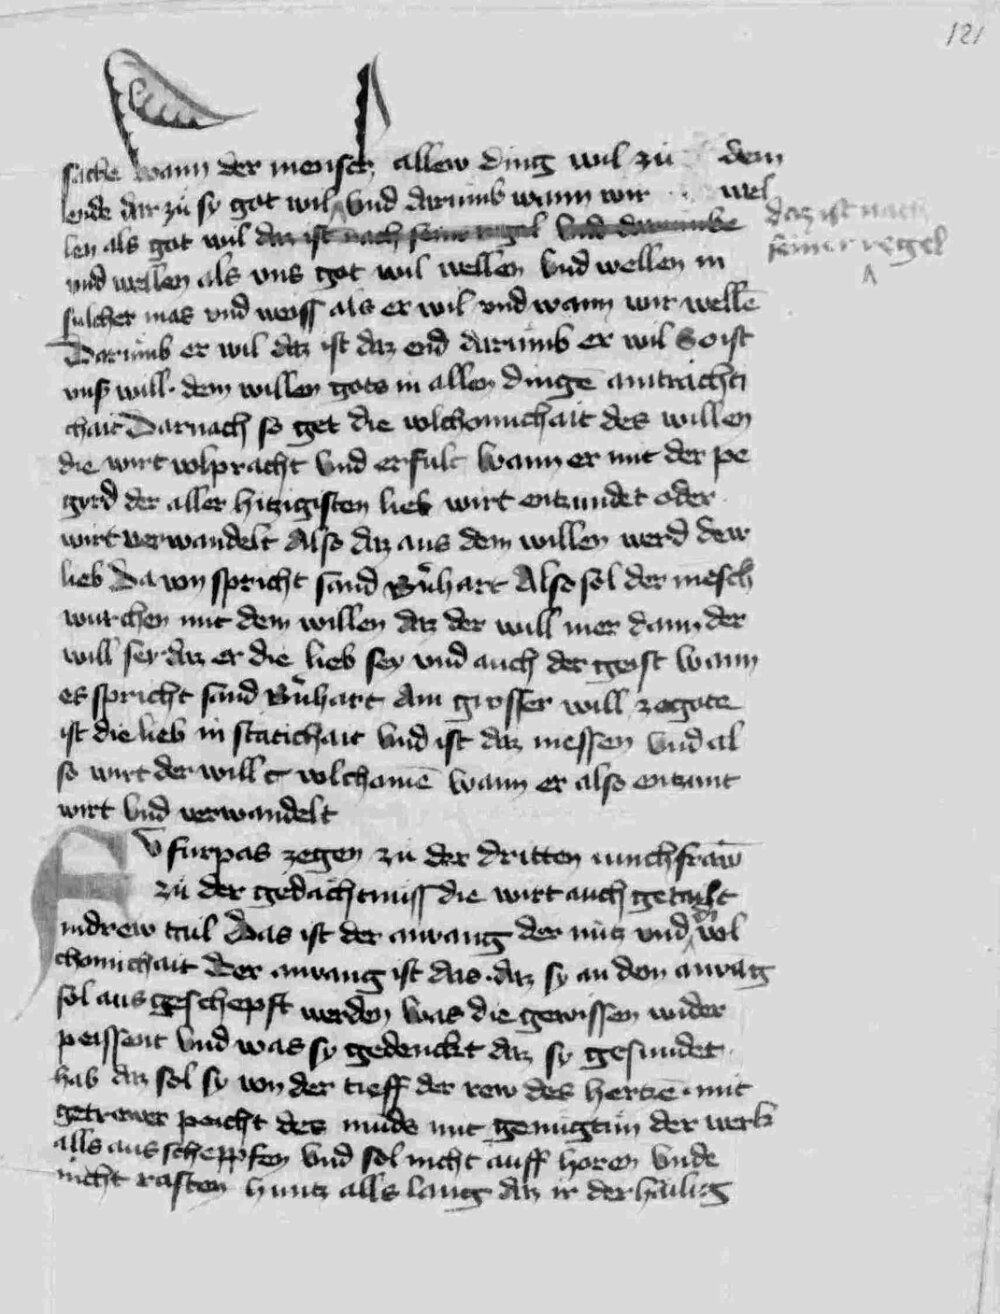 121
sache wann der mensch allew ding wil zu dem
ende dar zu sy got wil Vnd darumb wann wir wel
len als got wil daz ist nach seiner regel Vnd darumbe
daz ist nach
seiner regel
vnd wellen als vns got wil wellen Vnd wellen in
sulcher mas vnd weiss als er wil vnd wann wir wellē
Darumb er wil daz ist daz end darumb er wil So ist
vnser will dem willen gots in allen dingē aintrachti
chait Darnach so get die volchomichait des willen
die wirt volpracht Vnd erfult Wann er mit der pe
gird der aller hitzigisten lieb wirt entzundet oder
wirt verwandelt Also daz aus dem willen werd dew
lieb Da von spricht sand Bernhart Also sol der mēsch
wurchen mit dem willen daz der will mer dann der
will sey daz er die lieb sey vnd auch der geist Wann
es spricht sand Bernhart Ain grosser will ze gote
ist die lieb in statichait Vnd ist daz messen Vnd al
so wirt der will volchomē Wann er also entzunt
wirt Vnd verwandelt
furpas ze gen zu der dritten iunchfraw
zu der gedachtnuss die wirt auch getailt
in drew tail Das ist der anvang der nutz vnd di vol
chomichait Der anvang ist das daz sy an den anvang
sol aus geschepft werden Was die gewissen wider
peissent Vnd was sy gedenckt daz sy gesundet
hab daz sol sy von der tieff der rew des hertzē mit
getrewer peicht des munds mit genugtun der werk
alls aus scheppfen Vnd sol nicht auff horen Vnde
nicht rasten huntz alls lang daz ir der hailig